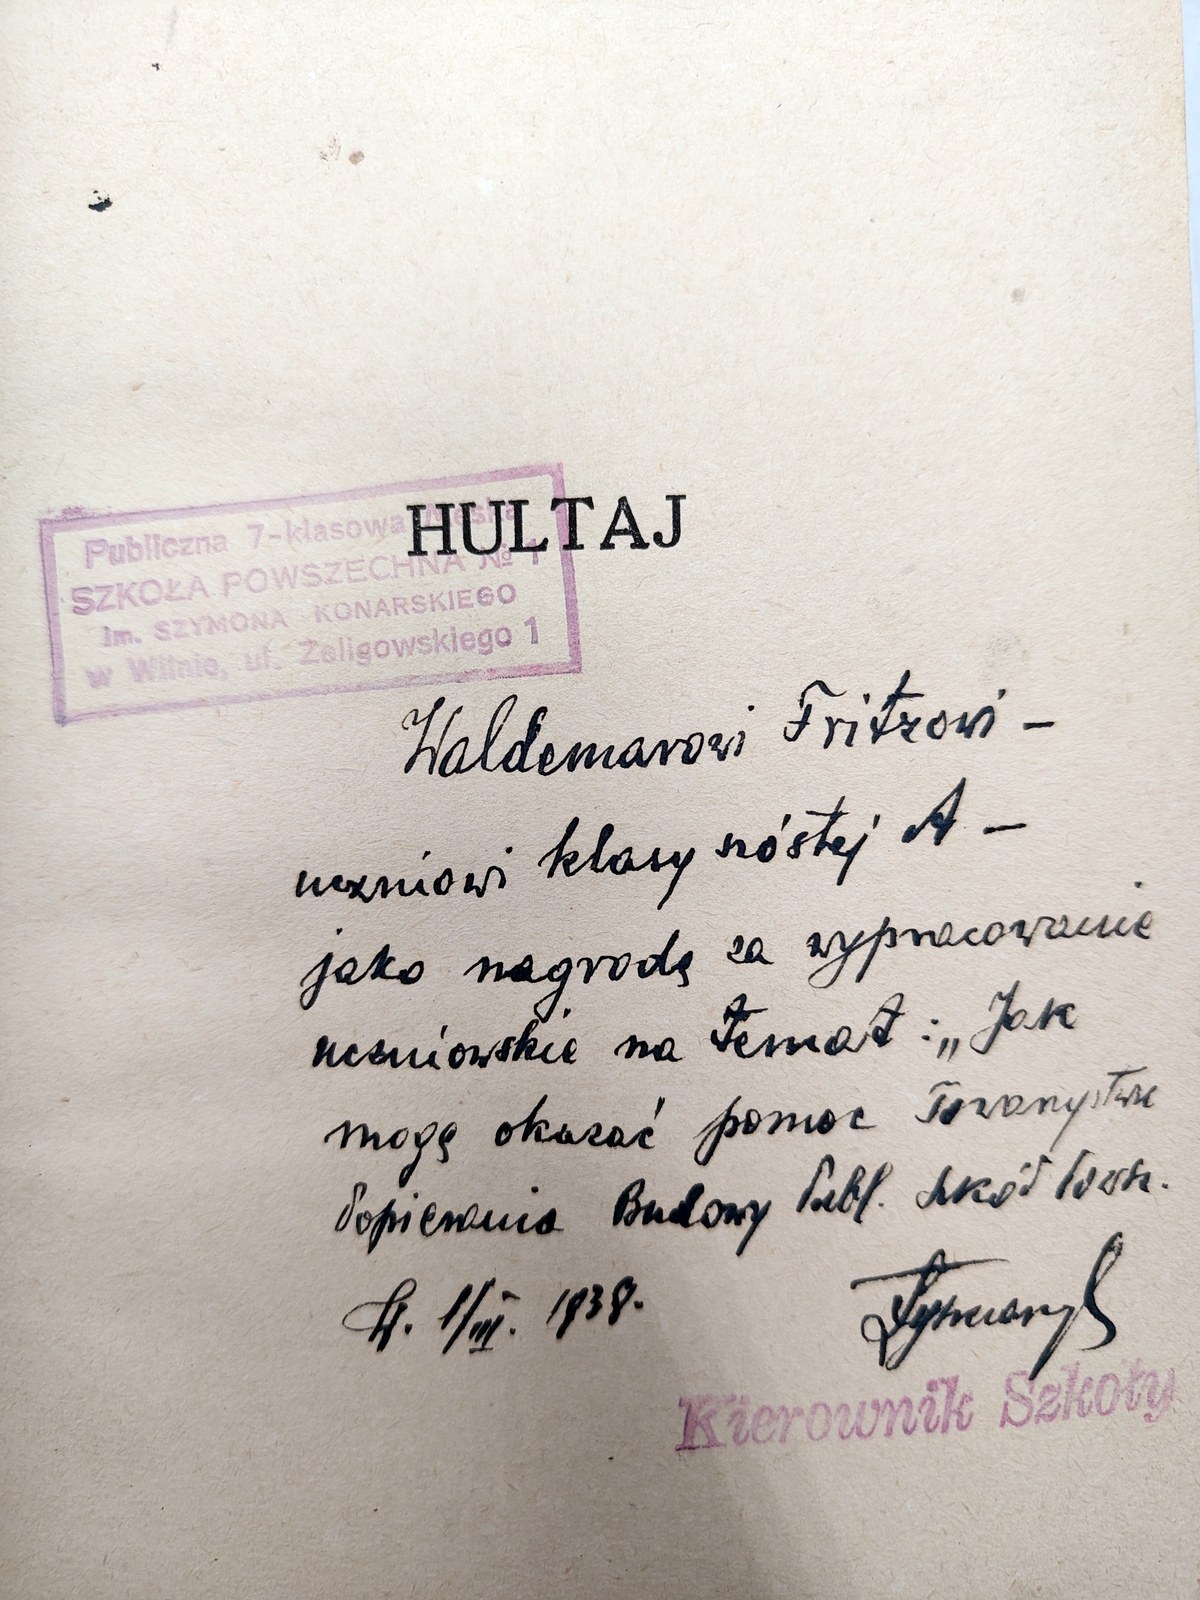 HULTAJ
Publiczna 7-klasowa Męska
SZKOŁA POWSZECHNA № 1
im. SZYMONA KONARSKIEGO
w Wilnie, ul. Żeligowskiego 1
Waldemarowi Fritzowi –
uczniowi klasy szóstej A –
jako nagrodę za wypracowanie
uczniowskie na temat: „Jak
mogę okazać pomoc Towarzystwu
Popierania Budowy Publ. Szkół Powsz.
1/III. 1938.
Kierownik Szkoły